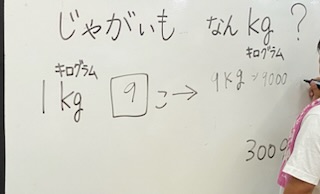 じゃがいも なん kg ?
キログラム
キログラム
1 kg 9 こ → 9kg 9000
300g